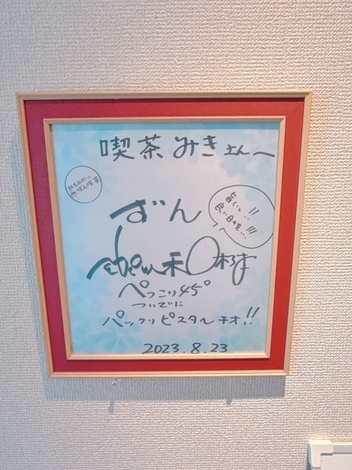 喫茶みきさんへ
旨いっ!!
良い日を…
ずん
ぺっこり45°
ついでに
パックリピスタチオ!!
2023.8.23